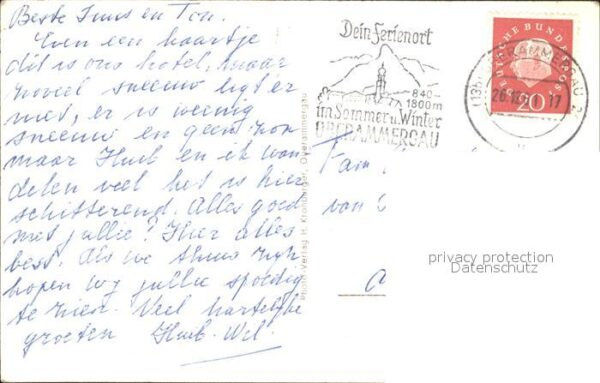 Beste Truus en Ton.
Even een kaartje
dit is ons hotel, maar
zoveel sneeuw ligt er
niet, er is weinig
sneeuw en geen zon
maar Huib en ik wan
delen veel het is hier
schitterend. Alles goed
met jullie? Hier alles
best. Als we thuis zijn
hopen wij jullie spoedig
te zien. Veel hartelijke
groeten Huib-Wil.
Photo-Verlag H. Kronburger, Oberammergau
Dein Ferienort
840-
1800m
im Sommer u. Winter
OBERAMMERGAU
OBERAMMERGAU
DEUTSCHE BUNDESPOST
20
Fam
van
privacy protection
Datenschutz